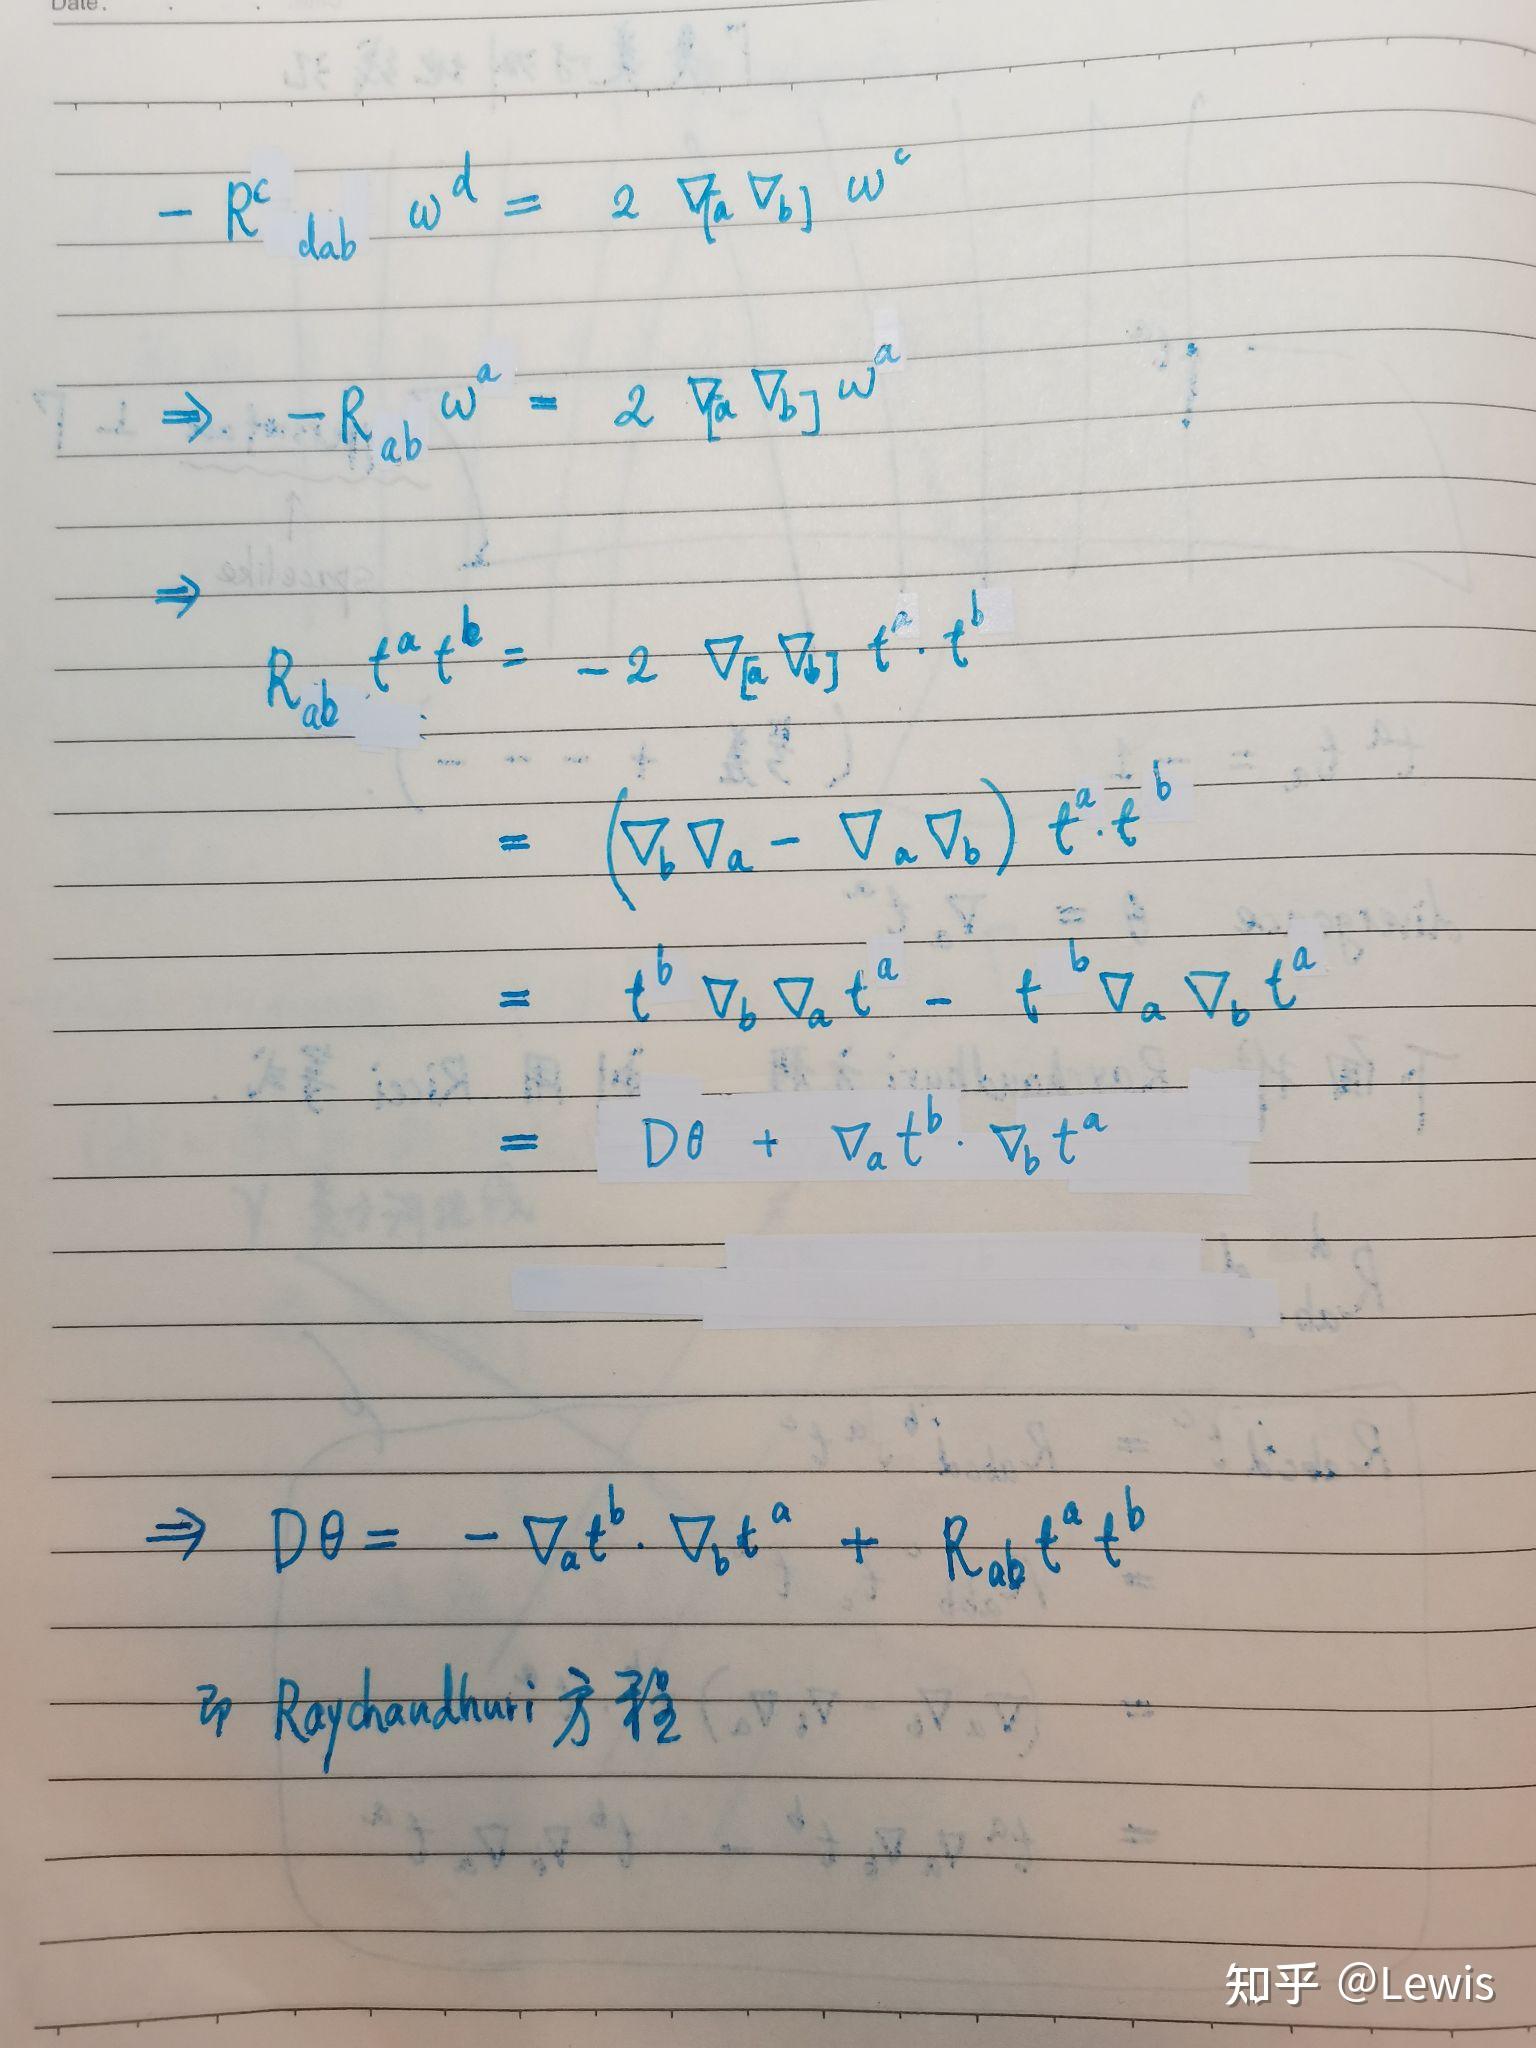 Date:
- R^c_{dab} ω^d = 2 ∇_{[a} ∇_{b]} ω^c
⇒ - R_{ab} ω^a = 2 ∇_{[a} ∇_{b]} ω^a
⇒
R_{ab} t^a t^b = - 2 ∇_{[a} ∇_{b]} t^a · t^b
= (∇_b ∇_a - ∇_a ∇_b) t^a · t^b
= t^b ∇_b ∇_a t^a - t^b ∇_a ∇_b t^a
= Dθ + ∇_a t^b · ∇_b t^a
⇒ Dθ = - ∇_a t^b · ∇_b t^a + R_{ab} t^a t^b
即 Raychaudhuri 方程
知乎 @Lewis